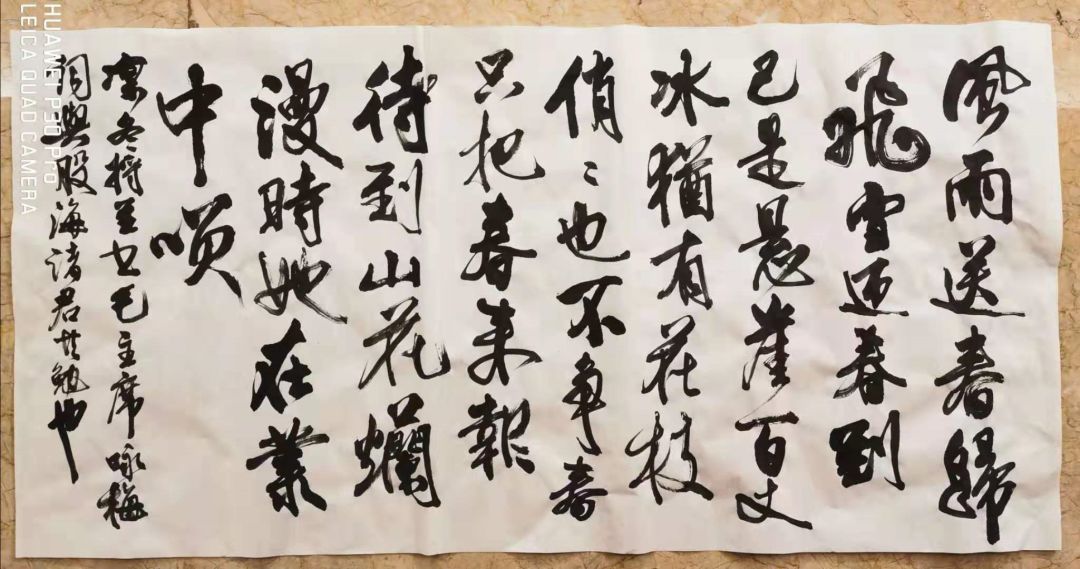 風雨送春歸
飛雪迎春到
已是懸崖百丈
冰猶有花枝
俏〻也不争春
只把春来報
待到山花爛
漫時她在叢
中咲
凛冬將至書毛主席咏梅
詞與股海諸君共勉也
HUAWEI P30 Pro
LEICA QUAD CAMERA